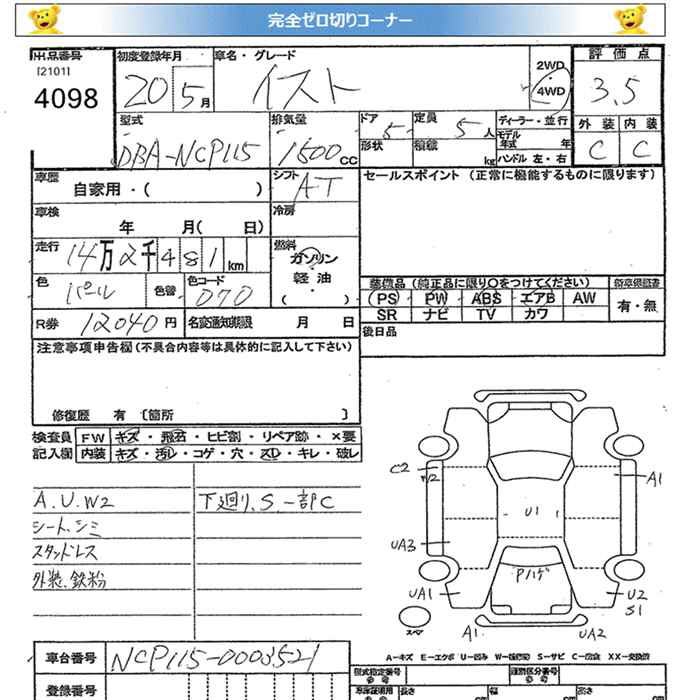 完全ゼロ切りコーナー
出品番号 初度登録年月 車名・グレード 2WD 評価点
[2101]
4098 20 5月 イスト 4WD 3.5
型式 排気量 ドア 5 定員 5人 ディーラー・並行 外装 内装
モデル年式 年
DBA-NCP115 1500cc 形状 積載 kg ハンドル 左・右 C C
車歴 自家用・( ) シフト AT セールスポイント (正常に機能するものに限ります)
車検 年 月( 日) 冷房
走行 14万2千481km 燃料 ガソリン
軽油
( )
色 パール 色替 色コード 070 装備品 (純正品に限り○をつけてください) 新車保証書
PS PW ABS エアB AW 有・無
SR ナビ TV カワ
R券 12040円 名変通知期限 月 日 後日品
注意事項申告欄 (不具合内容等は具体的に記入して下さい)
修復歴 有 〔箇所 〕
検査員 FW キズ・飛石・ヒビ割・リペア跡・×要
記入欄 内装 キズ・汚レ・コゲ・穴・スレ・キレ・破レ
A.U.W2 下廻り、S 一部C
シート、シミ
スタッドレス
外装、鉄粉
C2
W2
A1
U1
UA3
Pハゲ
UA1
U2
S1
スペア
A1
UA2
A-キズ E-エクボ U-凹み W-補修跡 S-サビ C-腐食 XX-交換済
車台番号 NCP115-0003521
型式指定番号 参考 類別区分番号 参考
登録番号 車庫証明用 参考 長さ cm 幅 cm 高さ cm